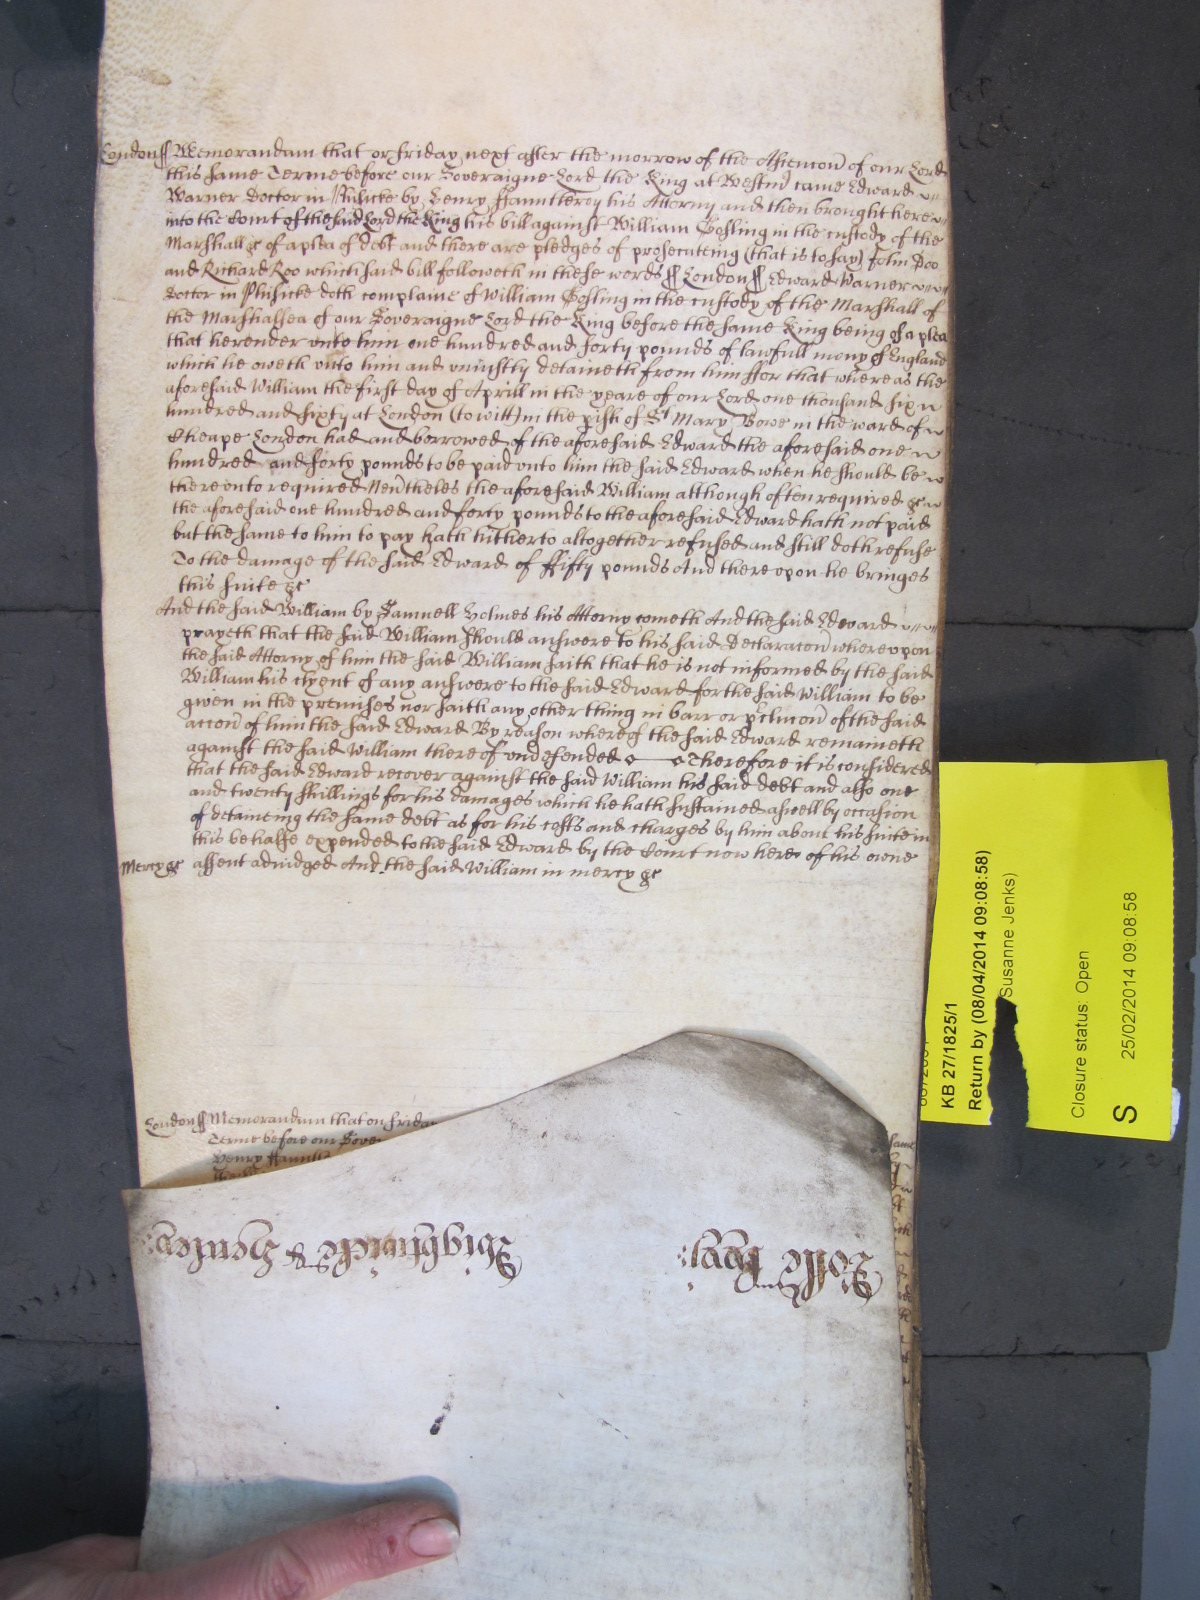 London ss Memorandum that on Friday next after the morrow of the Ascencon of our Lord
this same Terme before our Soveraigne Lord the King at Westm came Edward
Warner Doctor in Phisicke by Henry Fauntleroy his Attorny and then brought here
into the Court of the said Lord the King his bill against William Gosling in the custody of the
Marshall &c of a plea of debt and there are pledges of prosecuting (that is to say) John Doo
and Richard Roo which said bill followeth in these words ss London ss Edward Warner
Doctor in Phisicke doth complaine of William Gosling in the custody of the Marshall of
the Marshalsea of our Soveraigne Lord the King before the same King being of a plea
that he render unto him one hundred and forty pounds of lawfull mony of England
which he oweth unto him and uniustly detaineth from him ffor that whereas the
aforesaid William the first day of Aprill in the yeare of our Lord one thousand six
hundred and sixty at London (to witt) in the pish of St Mary Bowe in the ward of
Cheape London had and borrowed of the aforesaid Edward the aforesaid one
hundred and forty pounds to be paid unto him the said Edward when he should be
thereonto required Nevtheles the aforesaid William although often required &c
the aforesaid one hundred and forty pounds to the aforesaid Edward hath not paid
but the same to him to pay hath hitherto altogether refused and still doth refuse
To the damage of the said Edward of ffifty pounds And thereupon he bringes
this suite &c
And the said William by Samuell Holmes his Attorny cometh And the said Edward
prayeth that the said William should answere to his said Declaracon whereupon
the said Attorny of him the said William saith that he is not informed by the said
William his clyent of any answere to the said Edward for the said William to be
given in the premises nor saith any other thing in barr or pclucon of the said
accon of him the said Edward By reason whereof the said Edward remaineth
against the said William thereof undefended Therefore it is considered
that the said Edward recover against the said William his said debt and also one
and twenty shillings for his damages which he hath sustained aswell by occasion
of detaineing the same debt as for his costs and charges by him about his suite in
this behalfe expended to the said Edward by the Court now here of his owne
Mercy &c assent adiudged And the said William in mercy &c
London ss Memorandum that on Friday
Terme before our Sove
Henry Fauntle
same
KB 27/1825/1
Return by (08/04/2014 09:08:58)
Susanne Jenks)
Closure status: Open
S
25/02/2014 09:08:58